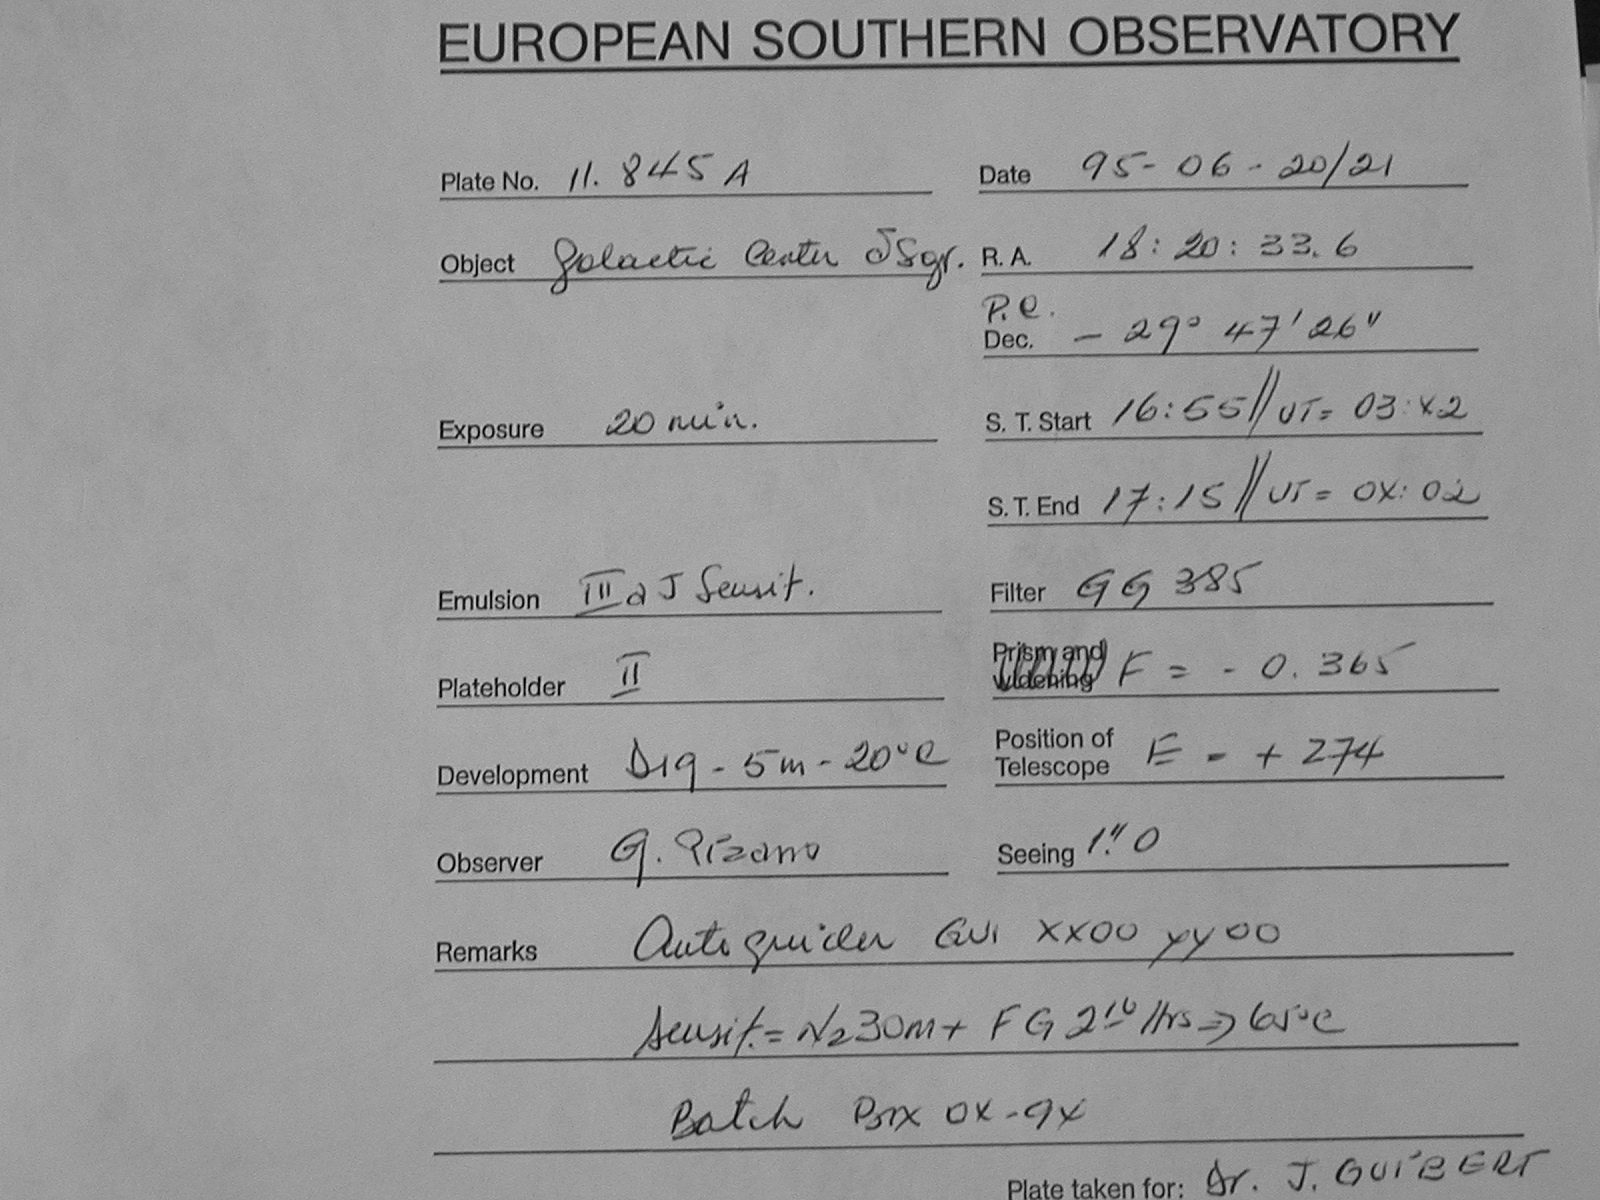 EUROPEAN SOUTHERN OBSERVATORY
Plate No. 11.845 A Date 95-06-20/21
Object Galactic Center δSgr. R. A. 18:20:33.6
P.e.
Dec. - 29° 47' 26"
Exposure 20 min. S. T. Start 16:55 // UT= 03:42
S. T. End 17:15 // UT= 04:02
Emulsion III a J Sensit. Filter GG 385
Plateholder II Prism and widening F = - 0.365
Development D19 - 5m - 20°C Position of Telescope E = + 274
Observer G. Pizarro Seeing 1".0
Remarks Autoguider GUI XX00 YY00
Sensit. = N2 30m + FG 2 Hrs => 65°C
Batch Box 04-94
Plate taken for: Dr. J. GUIBERT